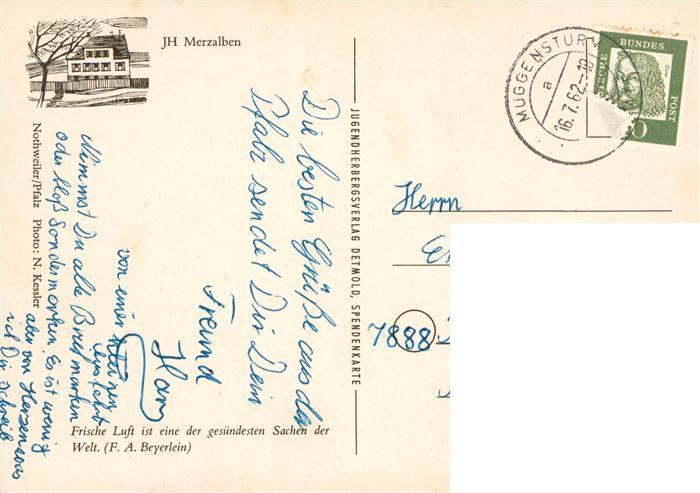 JH Merzalben
Nothweiler/Pfalz Photo: N. Kessler
Die besten Grüße aus der
Pfalz sendet Dir Dein
Freund
Hans
von einer
Nimmst Du alte Briefmarken
oder bloß Sondermarken. Es ist wenig
aber von Herzen was
ich Dir schreib
Frische Luft ist eine der gesündesten Sachen der
Welt. (F. A. Beyerlein)
JUGENDHERBERGSVERLAG DETMOLD, SPENDENKARTE
MUGGENSTURM
a
16.7.62.-18
BUNDES
POST
Herrn
7888